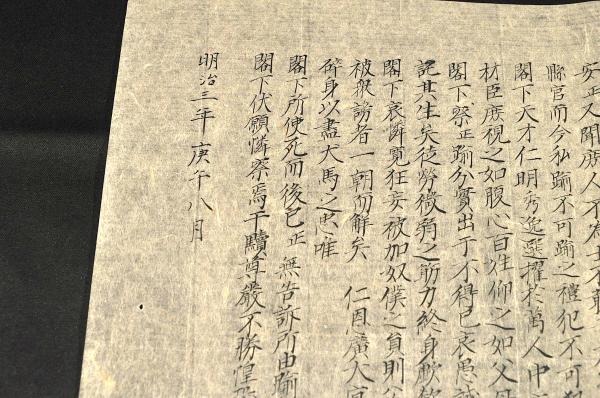 正又聞庶人不為士不敢
縣官而今私踰不可踰之禮犯不可
閣下天才仁明秀逸選擢於萬人中
材臣庶視之如腹心百姓仰之如父母
閣下察正踰分實出于不得已哀愚誠
其生矣徒勞微弱之筋力終身
閣下哀憐寬狂妄被加奴僕之負則
被衆謗者一朝而解矣 仁恩廣大
碎身以盡犬馬之忠唯
閣下所使死而後已正無告訴所由踰
閣下伏願憐察焉干瀆尊嚴不勝惶
明治三年庚午八月